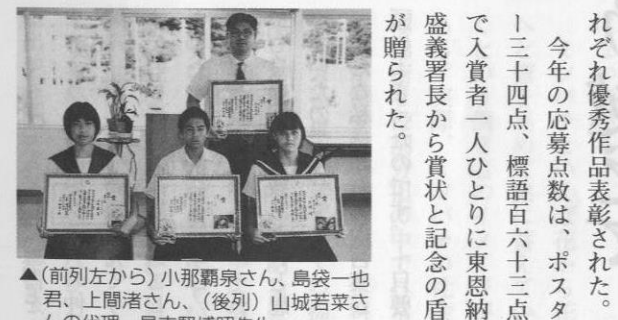 れぞれ優秀作品表彰された。
今年の応募点数は、ポスタ
ー三十四点、標語百六十三点
で入賞者一人ひとりに東恩納
盛義署長から賞状と記念の盾
が贈られた。
▲(前列左から)小那覇泉さん、島袋一也
君、上間渚さん、(後列)山城若菜さ